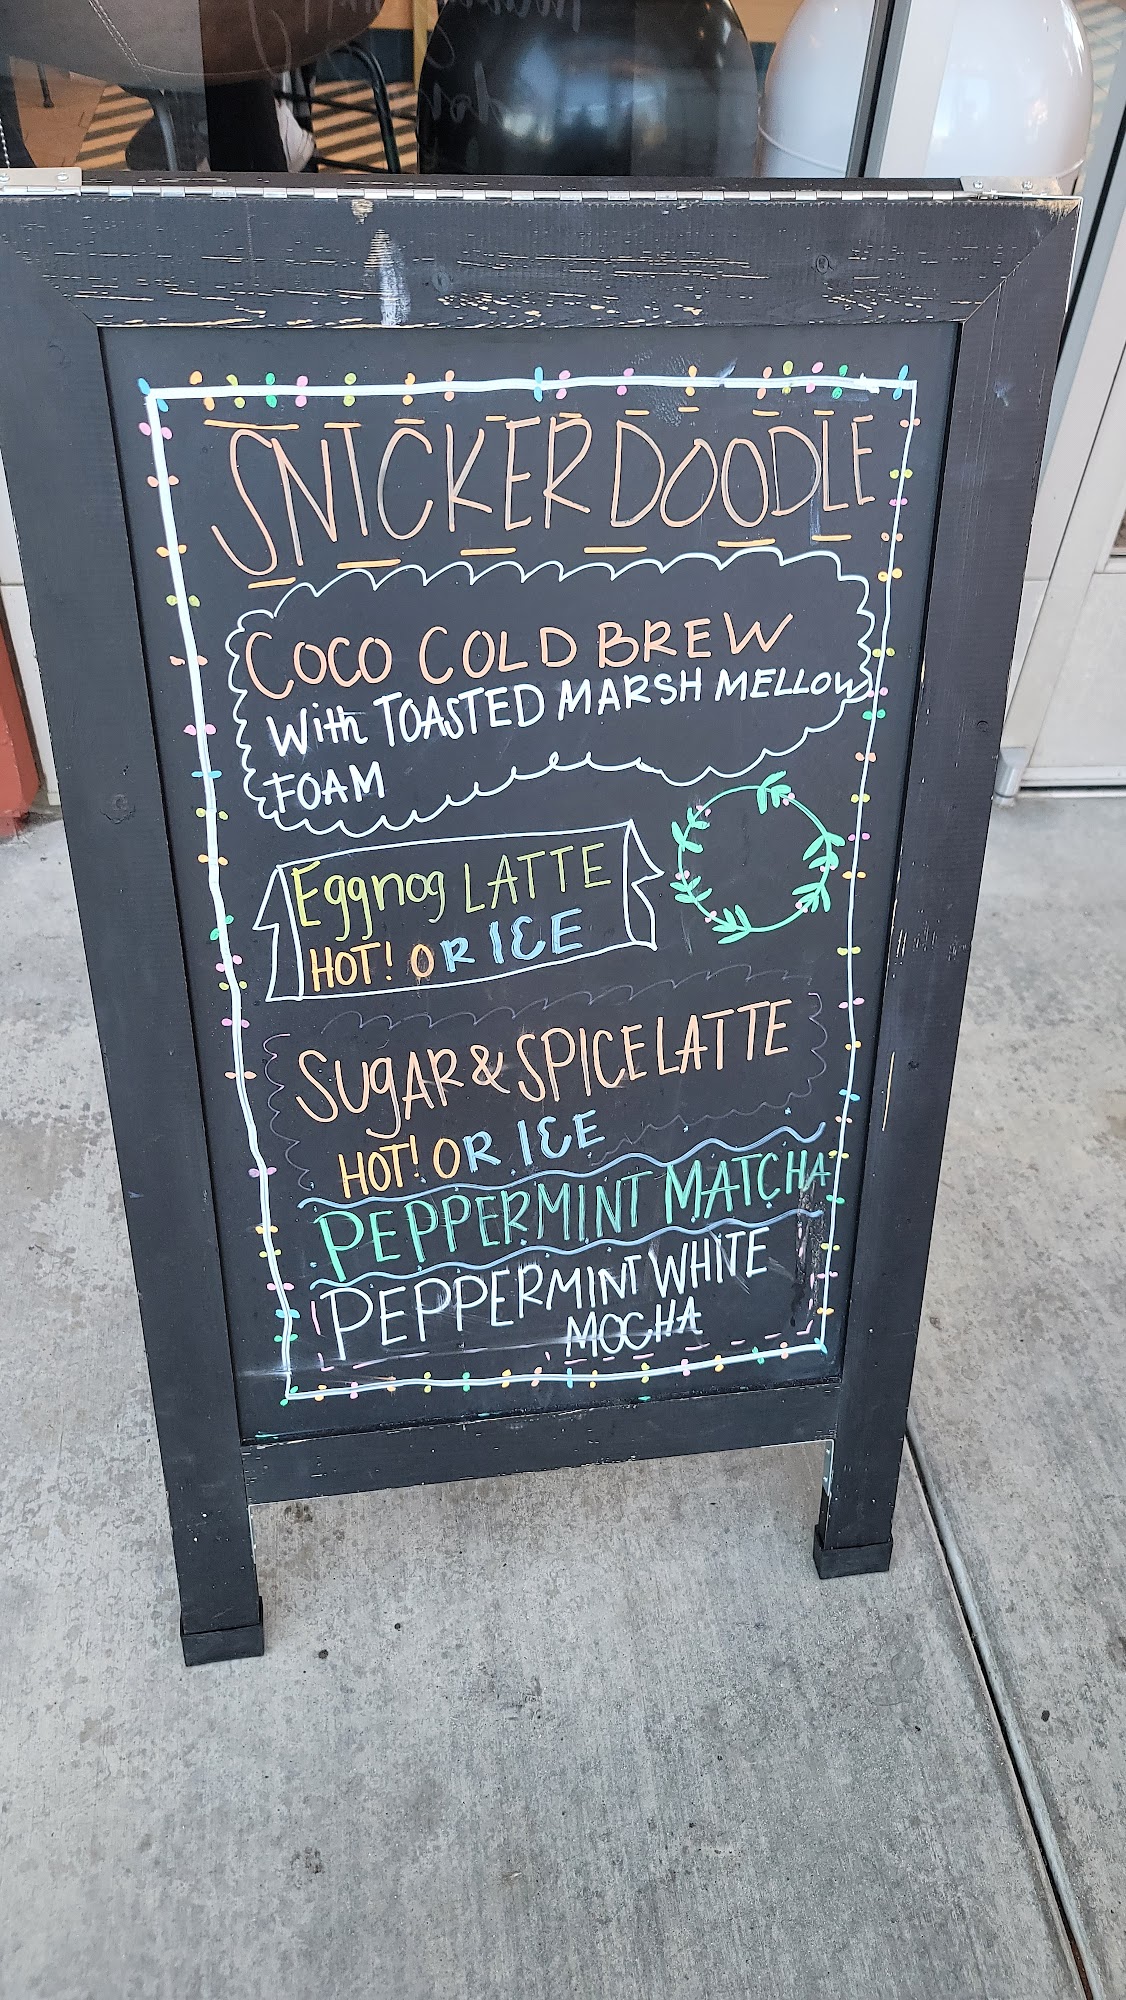 SNICKERDOODLE
COCO COLD BREW
With TOASTED MARSHMELLOW
FOAM
Eggnog LATTE
HOT! OR ICE
SUgAR & SPICE LATTE
HOT! OR ICE
PEPPERMINT MATCHA
PEPPERMINT WHITE
MOCHA